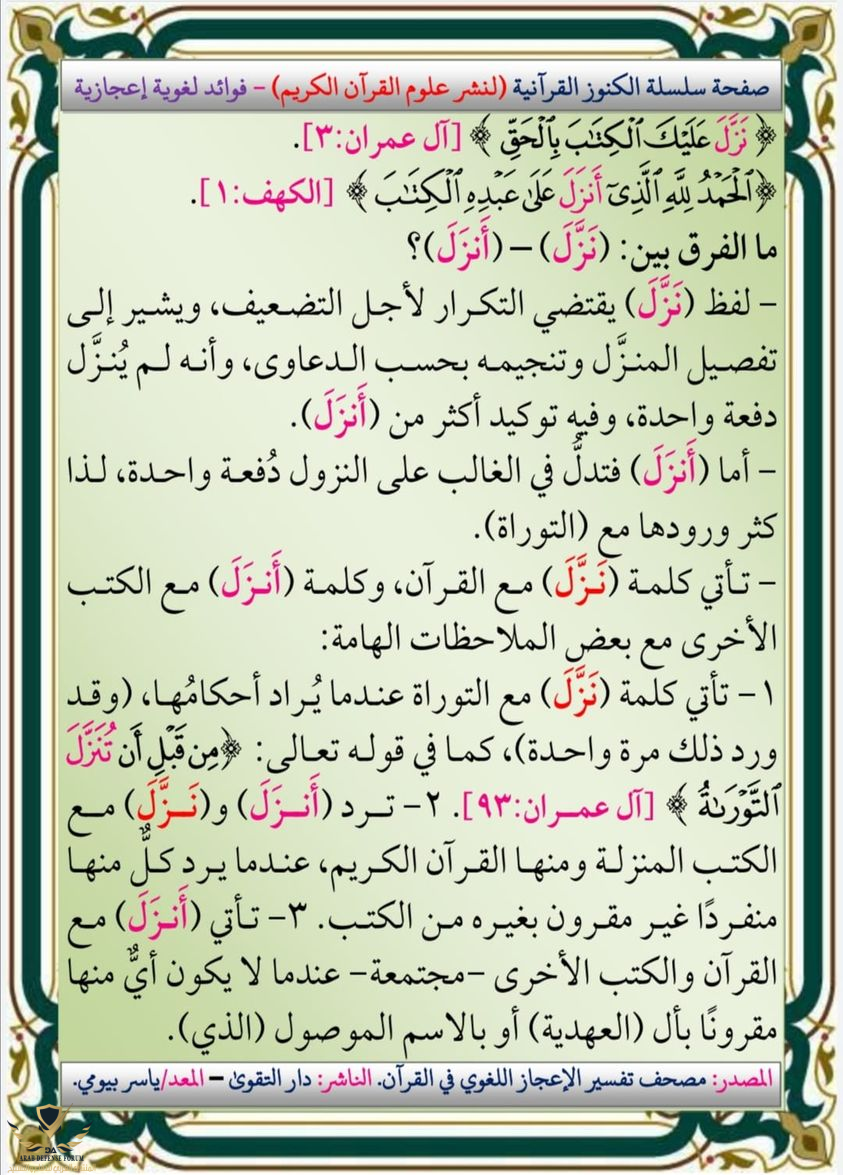 صفحة سلسلة الكنوز القرآنية (لنشر علوم القرآن الكريم) – فوائد لغوية إعجازية
﴿ نَزَّلَ عَلَيْكَ ٱلْكِتَٰبَ بِٱلْحَقِّ ﴾ [آل عمران:٣].
﴿ٱلْحَمْدُ لِلَّهِ ٱلَّذِىٓ أَنزَلَ عَلَىٰ عَبْدِهِ ٱلْكِتَٰبَ ﴾ [الكهف:١].
ما الفرق بين: (نَزَّلَ) – (أَنزَلَ)؟
– لفظ (نَزَّلَ) يقتضي التكرار لأجل التضعيف، ويشير إلى
تفصيل المنزَّل وتنجيمه بحسب الدعاوى، وأنه لم يُنزَّل
دفعة واحدة، وفيه توكيد أكثر من (أَنزَلَ).
– أما (أَنزَلَ) فتدلُّ في الغالب على النزول دُفعة واحدة، لذا
كثر ورودها مع (التوراة).
– تأتي كلمة (نَزَّلَ) مع القرآن، وكلمة (أَنزَلَ) مع الكتب
الأخرى مع بعض الملاحظات الهامة:
١– تأتي كلمة (نَزَّلَ) مع التوراة عندما يُراد أحكامُها، (وقد
ورد ذلك مرة واحدة)، كما في قوله تعالى: ﴿مِن قَبْلِ أَن تُنَزَّلَ
ٱلتَّوْرَىٰةُ ﴾ [آل عمران:٩٣]. ٢– ترد (أَنزَلَ) و(نَزَّلَ) مع
الكتب المنزلة ومنها القرآن الكريم، عندما يرد كلٌّ منها
منفردًا غير مقرون بغيره من الكتب. ٣– تأتي (أَنزَلَ) مع
القرآن والكتب الأخرى –مجتمعة– عندما لا يكون أيٌّ منها
مقرونًا بأل (العهدية) أو بالاسم الموصول (الذي).
المصدر: مصحف تفسير الإعجاز اللغوي في القرآن. الناشر: دار التقوىٰ – المعد/ياسر بيومي.
DA
ARAB DEFENSE FORUM